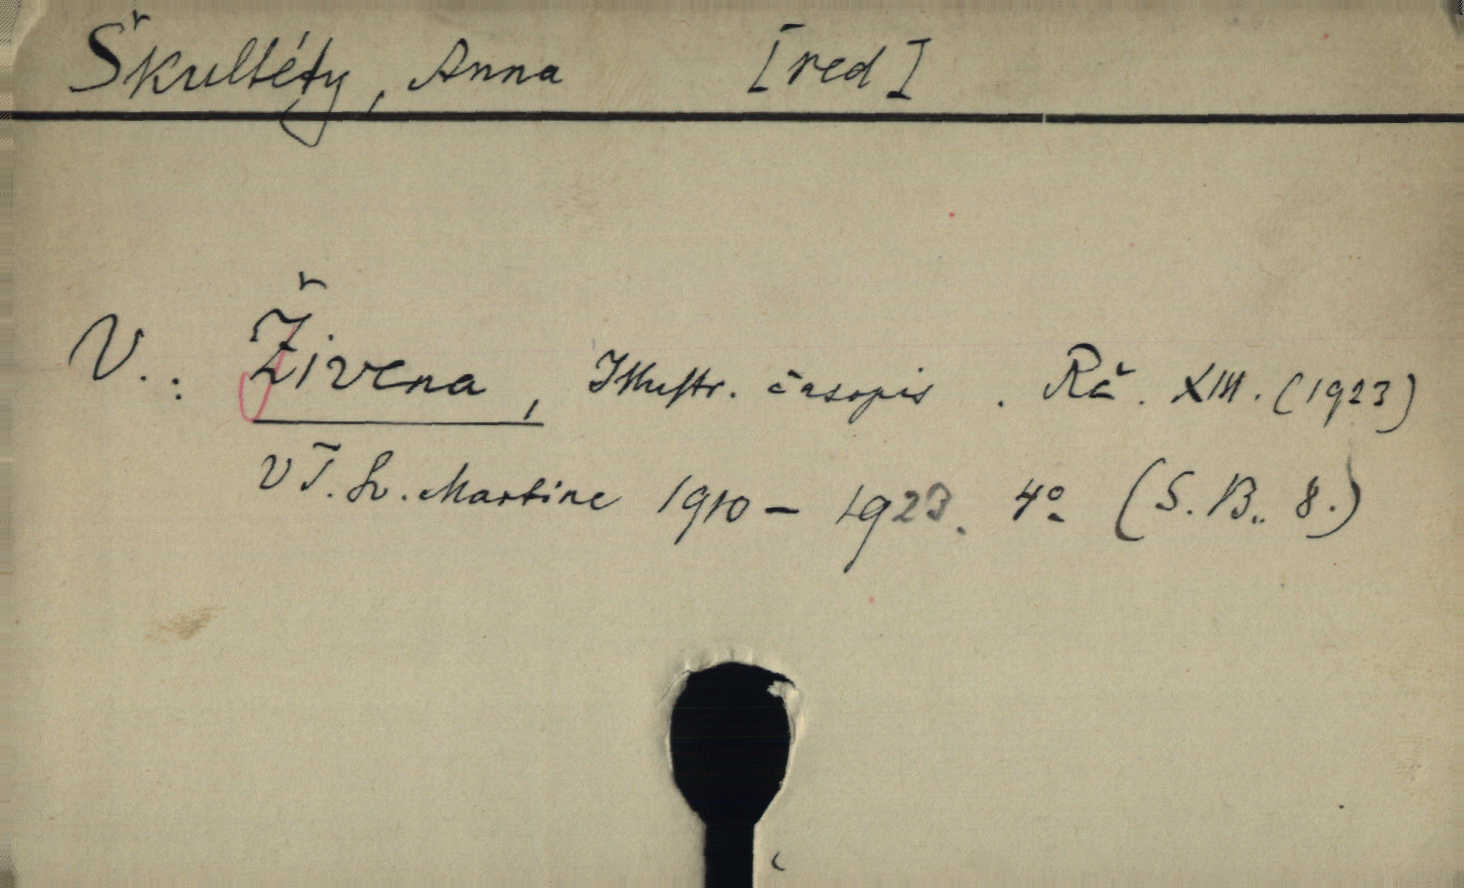 Škultéty, Anna [red]
V.: Živena, Illustr. časopis. Rč. XIII. (1923)
v T. Sv. Martine 1910 - 1923. 4° (S. B. 8.)